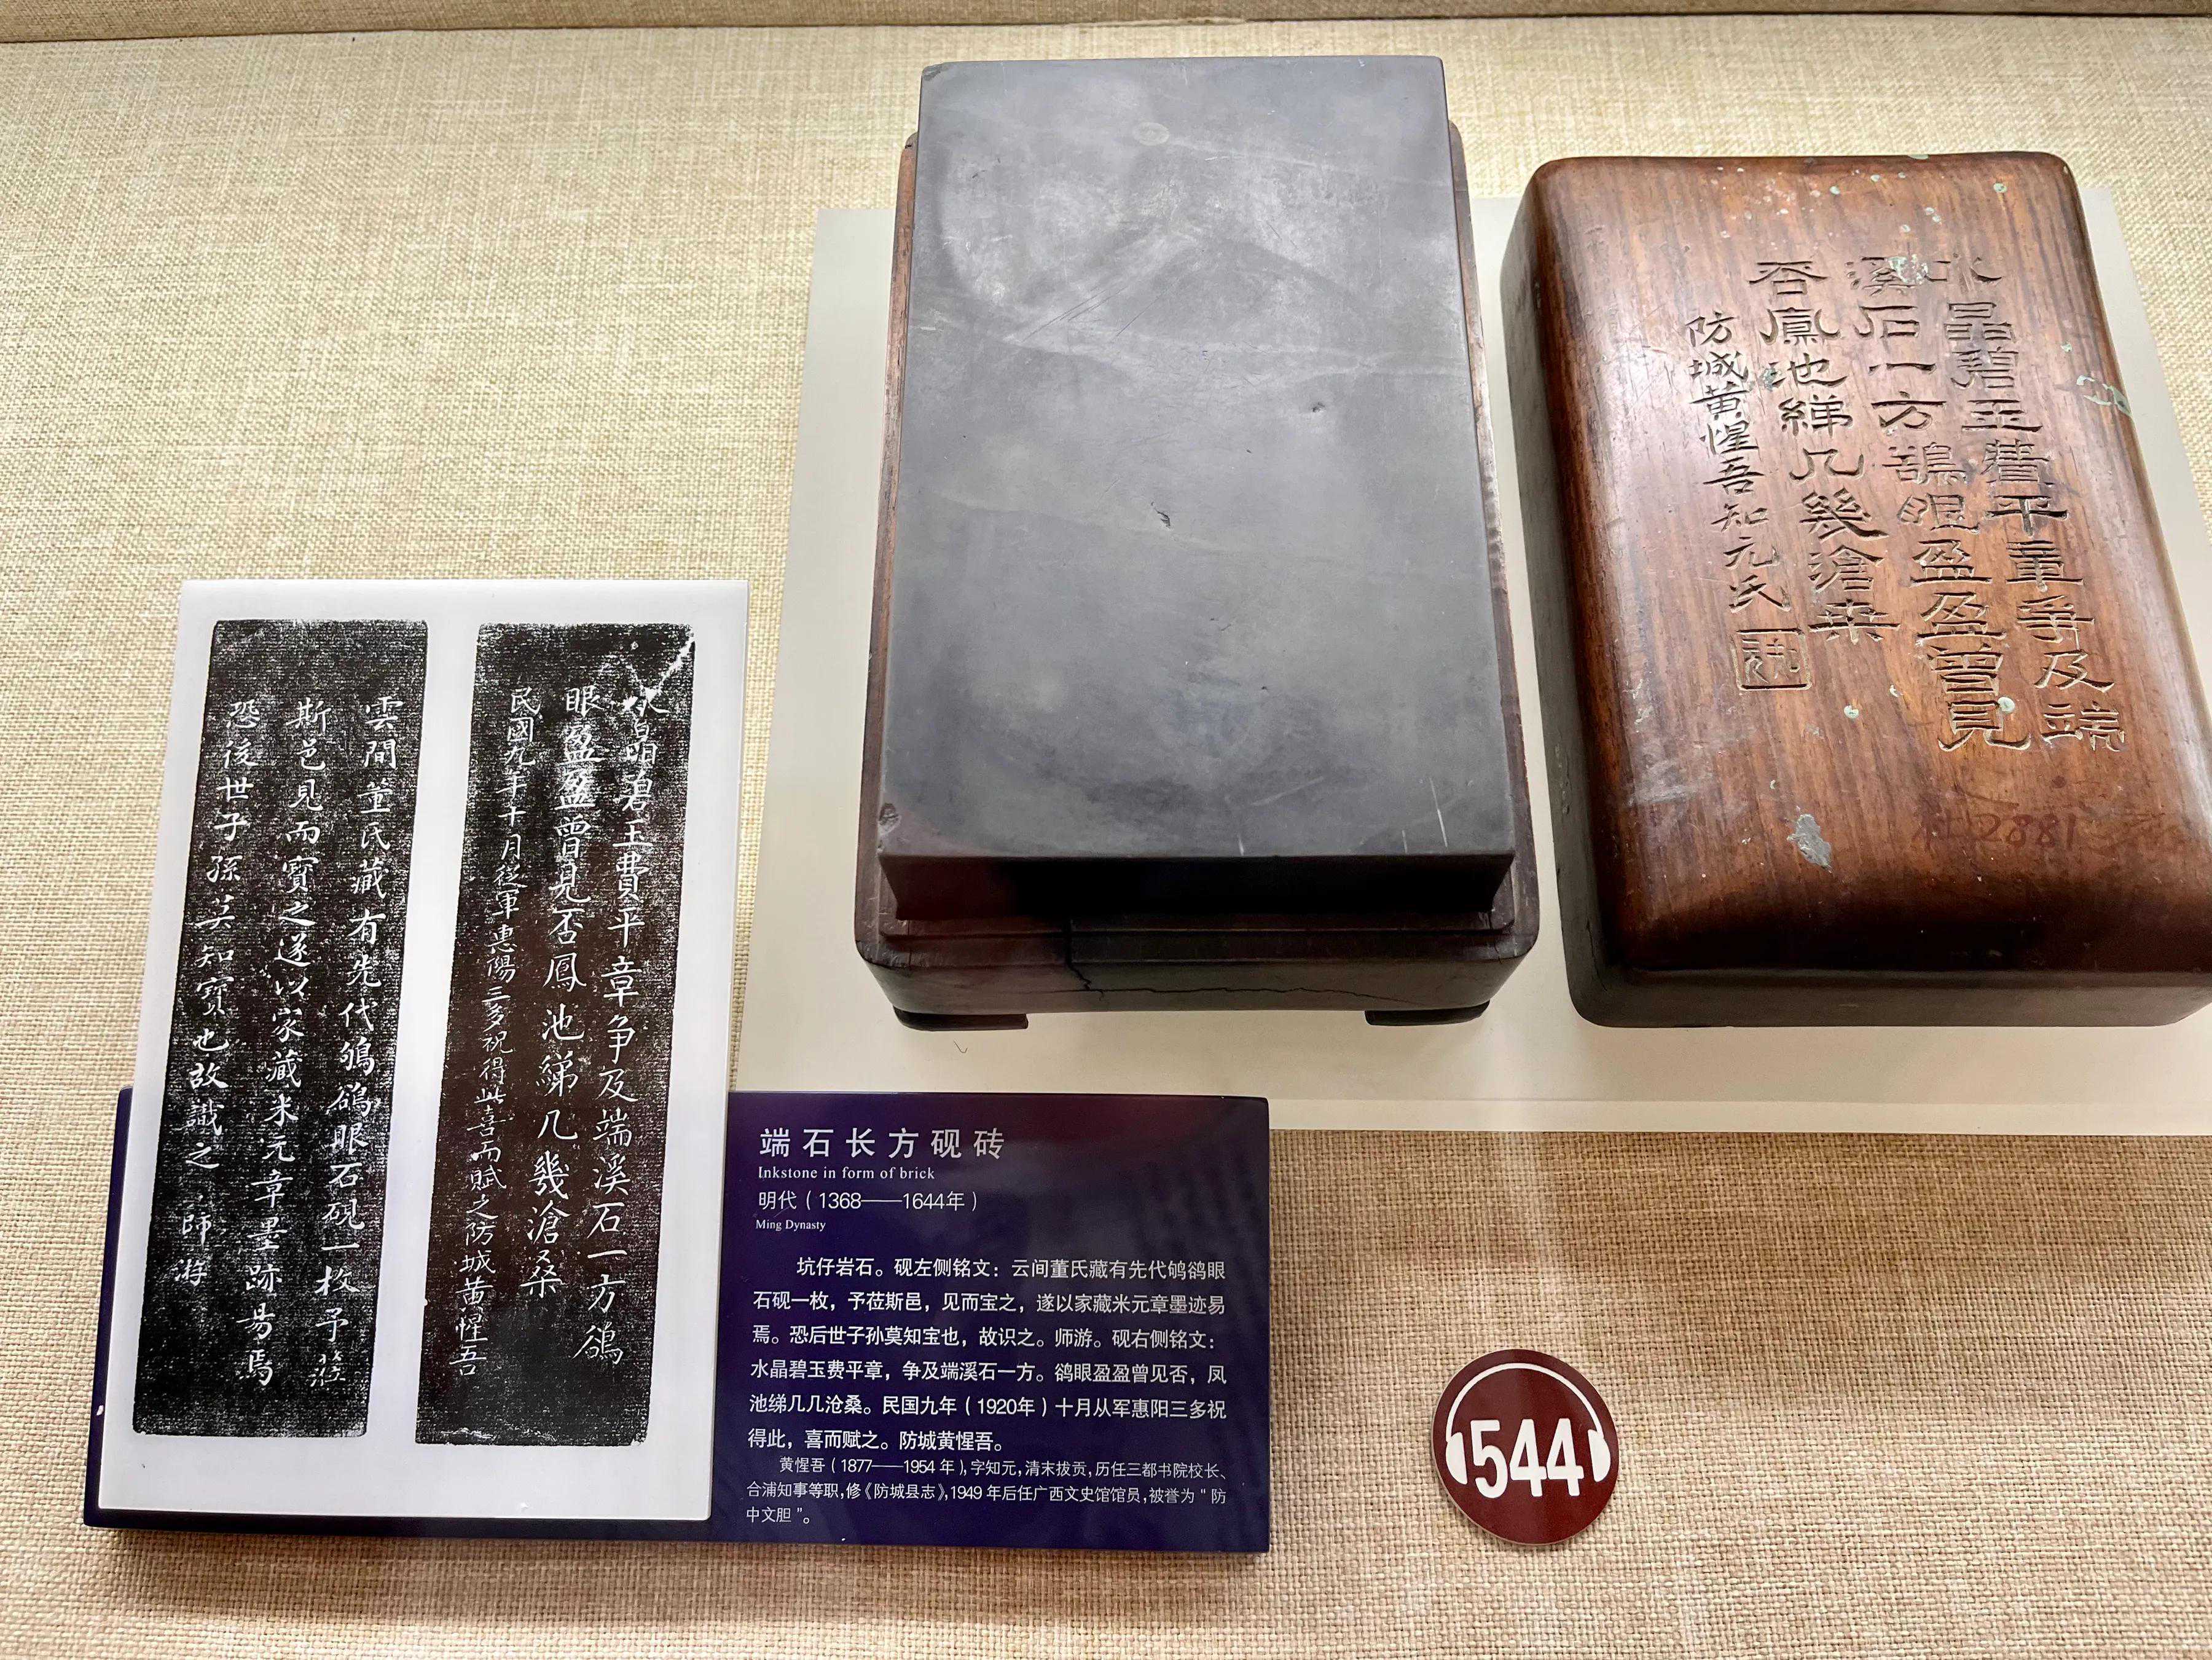 水晶碧玉費平章爭及端
溪石一方鵒眼盈盈曾見
否鳳池綈几幾滄桑
防城黄惺吾知元氏
水晶碧玉費平章争及端溪石一方鵒
眼盈盈曾見否鳳池綈几幾滄桑
民國九年十月從軍惠陽三多祝得此喜而賦之防城黄惺吾
雲間董氏藏有先代鴝鵒眼石硯一枚予莅
斯邑見而寶之遂以家藏米元章墨跡易焉
恐後世子孫莫知寶也故識之 師游
端石长方砚砖
Inkstone in form of brick
明代（1368——1644年）
Ming Dynasty
坑仔岩石。砚左侧铭文：云间董氏藏有先代鸲鹆眼
石砚一枚，予莅斯邑，见而宝之，遂以家藏米元章墨迹易
焉。恐后世子孙莫知宝也，故识之。师游。砚右侧铭文：
水晶碧玉费平章，争及端溪石一方。鹆眼盈盈曾见否，凤
池绨几几沧桑。民国九年（1920年）十月从军惠阳三多祝
得此，喜而赋之。防城黄惺吾。
黄惺吾（1877——1954年），字知元，清末拔贡，历任三都书院校长、
合浦知事等职，修《防城县志》，1949年后任广西文史馆馆员，被誉为“防
中文胆”。
544